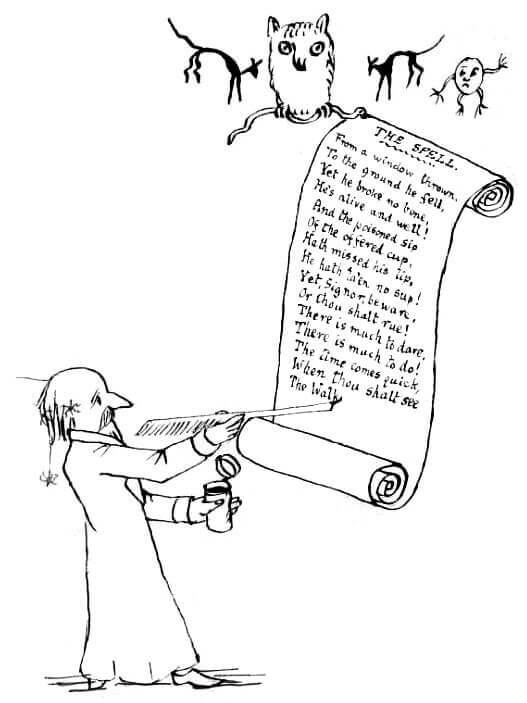 THE SPELL.
From a window thrown,
To the ground he fell,
Yet he broke no bone,
He's alive and well!
And the poisoned sip
Of the offered cup,
Hath missed his lip,
He hath ta'en no sup!
Yet, Signor, beware,
Or thou shalt rue!
There is much to dare,
There is much to do!
The time comes quick,
When thou shalt see
The Walk